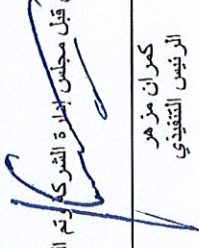 قبل مجلس إدارة الشركة وتم
كمران مزهر
الرئيس التنفيذي